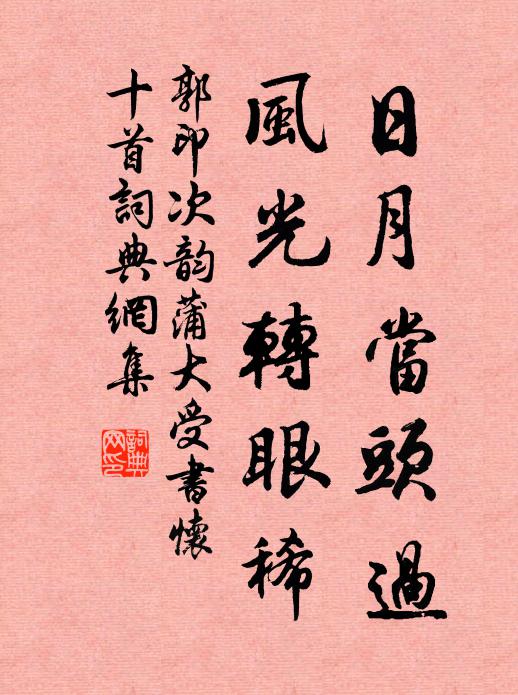 日月當頭過
風光轉眼稀
郭印次韵蒲大受書懷
十首詞典網集
詞典网印